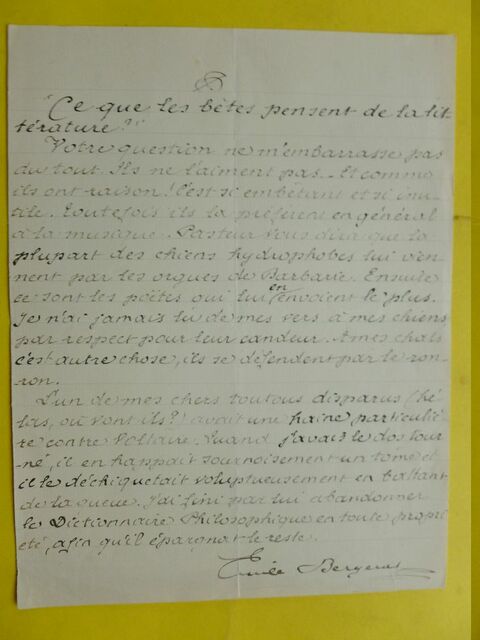 "Ce que les bêtes pensent de la lit-
térature?"
Votre question ne m'embarrasse pas
du tout. Ils ne l'aiment pas. Et comme
ils ont raison! C'est si embêtant et si inu-
tile. Toutefois ils la préfèrent en général
à la musique. Pasteur vous dira que la
plupart des chiens hydrophobes lui vien-
nent par les orgues de Barbarie. Ensuite
ce sont les poëtes qui lui en envoient le plus.
Je n'ai jamais lu de mes vers à mes chiens
par respect pour leur candeur. A mes chats
c'est autre chose, ils se défendent par le ron-
ron.
L'un de mes chers toutous disparus (hé-
las, où vont ils?) avait une haine particuliè-
re contre Voltaire. Quand j'avais le dos tour-
né, il en happait sournoisement un tome et
il le déchiquetait voluptueusement en battant
de la queue. J'ai fini par lui abandonner
le Dictionnaire Philosophique en toute propri-
été, afin qu'il épargnat le reste.
Emile Bergerat